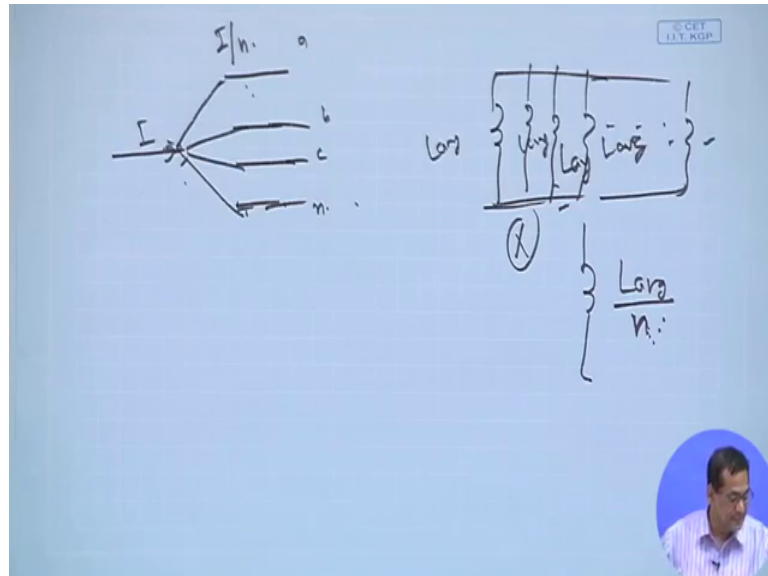 I/n. a
© CET
I.I.T. KGP
I
b
c
n.
Lavg Lavg Lavg Lavg
X
Lavg
n